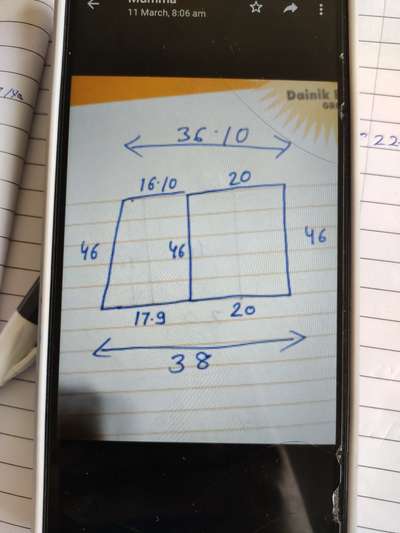 11 March, 8:06 am
Dainik
36.10
16.10 20
46 46 46
17.9 20
38